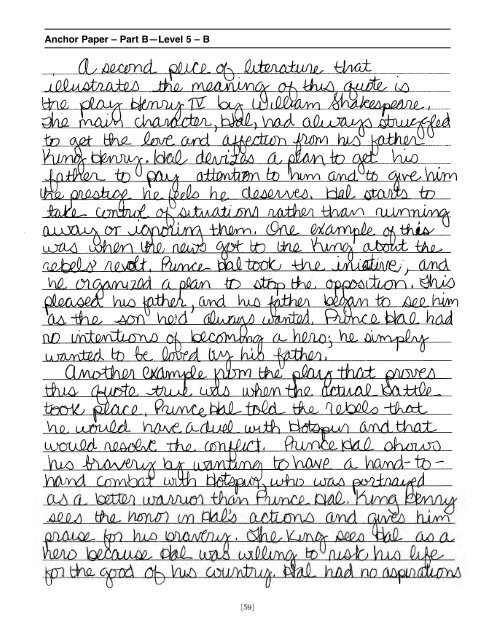 Anchor Paper – Part B—Level 5 – B
A second peice of literature that
illustrates the meaning of this quote is
the play Henry IV by William Shakespeare.
The main character, Hal, had always struggled
to get the love and affection from his father
King Henry. Hal devizes a plan to get his
father to pay attention to him and to give him
the prestige he feels he deserves. Hal starts to
take control of situations rather than running
away or ignoring them. One example of this
was when the news got to the King about the
rebels' revolt. Prince Hal took the iniative, and
he organized a plan to stop the opposition. This
pleased his father, and his father began to see him
as the son he'd always wanted. Prince Hal had
no intentions of becoming a hero; he simply
wanted to be loved by his father.
Another example from the play that proves
this quote true was when the actual battle
took place. Prince Hal told the rebels that
he would have a duel with Hotspur and that
would resolve the conflict. Prince Hal shows
his bravery by wanting to have a hand-to-
hand combat with Hotspur, who was portrayed
as a better warrior than Prince Hal. King Henry
sees the honor in Hal's actions and gives him
praise for his bravery. The King sees Hal as a
hero because Hal was willing to risk his life
for the good of his country. Hal had no aspirations
[59]